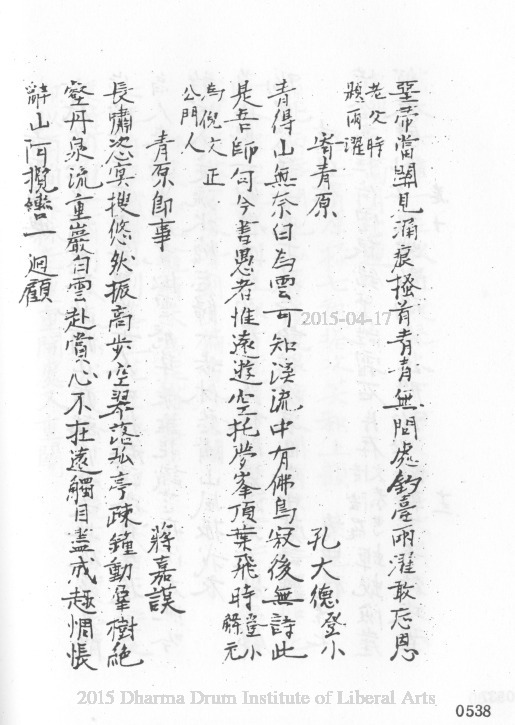 帝當關見痕搔首青青無問處釣臺兩濯敢忘恩
老父時
題兩濯
寄青原
孔大德登小
青得山無奈白為雲可知溪流中有佛鳥寂後無詩此
是吾師句今書愚者惟遠遊空托夢峯頂葉飛時登小
元
為倪文正
公門人
青原即事
蔣嘉謨
長嘯恣冥搜悠然振高步空翠落孤亭疎鐘動羣樹絕
壑丹泉流重巖白雲赴賞心不在遠觸目盡成趣惆悵
辭山阿攬轡一迴顧
2015-04-17
2015 Dharma Drum Institute of Liberal Arts
0538